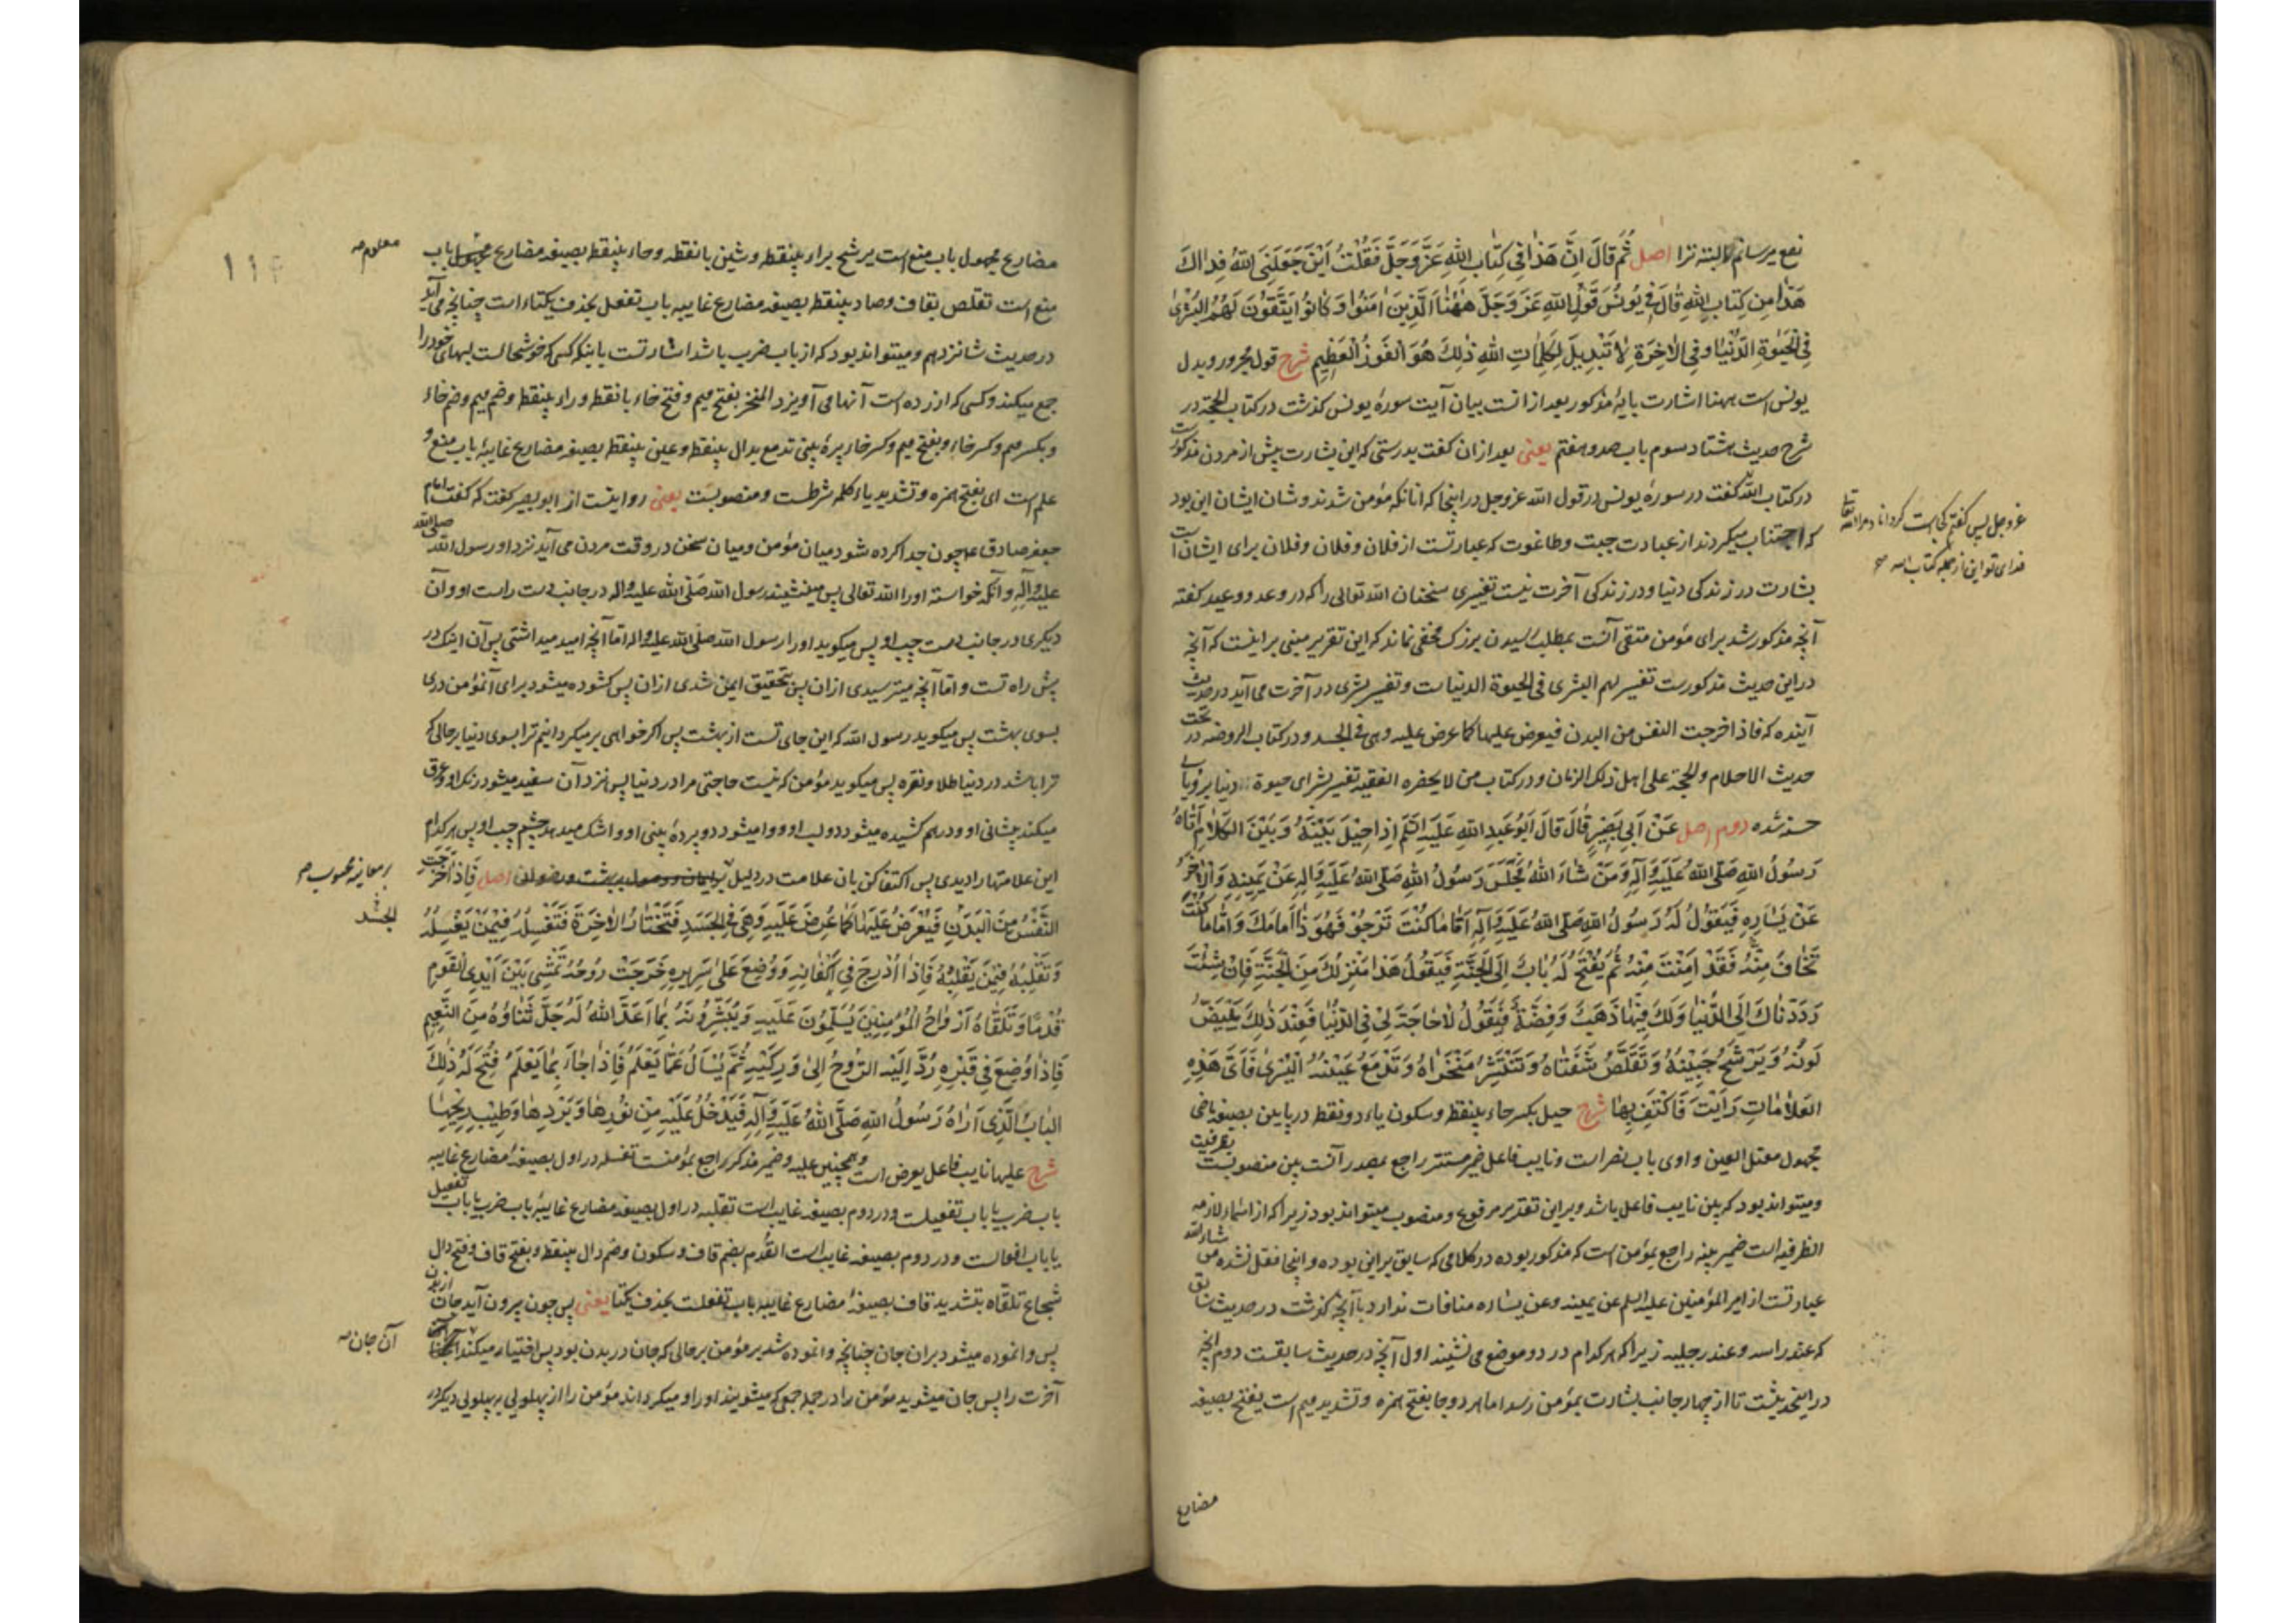 نفع میرسانم البته ترا اصل ثُمَّ قَالَ اِنَّ هَذَا فِي كِتَابِ اللهِ عَزَّ وَجَلَّ فَقُلْتُ اَيْنَ جَعَلَنِيَ اللهُ فِدَاكَ
هَذَا مِن كِتَابِ اللهِ قَالَ فِي يُونُسَ قَوْلِ اللهِ عَزَّ وَجَلَّ هٰهُنَا اَلَّذِينَ اٰمَنُوا وَكَانُوا يَتَّقُونَ لَهُمُ الْبُشْرٰى
فِي الْحَيٰوةِ الدُّنْيَا وَفِي الْاٰخِرَةِ لَا تَبْدِيلَ لِكَلِمَاتِ اللهِ ذٰلِكَ هُوَ الْفَوْزُ الْعَظِيمُ شرح قول مجرور و بدل
یونس است ههنا اشارت بآیهٔ مذکور بعد از انست بیان آیت سورهٔ یونس گذشت در کتاب الحجة در
شرح حدیث هشتاد سوم باب صد و هفتم یعنی بعد ازان گفت بدرستی که این بشارت پیش از مردن مذکورست
در کتاب الله گفت در سورهٔ یونس در قول الله عز و جل در اینجا که آنانکه مؤمن شدند و شان ایشان این بود
که اجتناب میکردند از عبادت جبت و طاغوت که عبارتست از فلان و فلان و فلان برای ایشان است
بشارت در زندگی دنیا و در زندگی آخرت نیست تغییری سخنان الله تعالی را که در وعد و وعید گفته
آنچه مذکور شد برای مؤمن متقی آنست بمطلب رسیدن بزرگ مخفی نماند که این تقریر مبنی بر اینست که آنچه
در این حدیث مذکورست تفسیر لهم البشری فی الحیوة الدنیاست و تفسیر بشری در آخرت می آید در حدیث
آینده که فاذا خرجت النفس من البدن فیعرض علیها کما عرض علیه و هی فی الجسد و در کتاب الروضه در تحت
حدیث الاحلام والحجة علی اهل ذلک الزمان و در کتاب من لا یحضره الفقیه تفسیر بشرای حیوة دنیا برؤیای
حسنه شده دوم اصل عَنْ اَبِي بَصِيرٍ قَالَ قَالَ اَبُو عَبْدِ اللهِ عَلَيْهِ السَّلَم اِذَا حِيلَ بَيْنَهُ وَبَيْنَ الْكَلَامِ اَتَاهُ
رَسُولُ اللهِ صَلَّى اللهُ عَلَيْهِ وَآلِهِ وَمَنْ شَاءَ اللهُ فَجَلَسَ رَسُولُ اللهِ صَلَّى اللهُ عَلَيْهِ وَالِهِ عَنْ يَمِينِهِ وَالْاٰخَرُ
عَنْ يَسَارِهِ فَيَقُولُ لَهُ رَسُولُ اللهِ صَلَّى اللهُ عَلَيْهِ وَآلِهِ اَمَّا مَا كُنْتَ تَرْجُوْ فَهُوَ ذَا اَمَامَكَ وَاَمَّا مَا كُنْتَ
تَخَافُ مِنْهُ فَقَدْ اٰمِنْتَ مِنْهُ ثُمَّ يُفْتَحُ لَهُ بَابٌ اِلَى الْجَنَّةِ فَيَقُولُ هَذَا مَنْزِلُكَ مِنَ الْجَنَّةِ فَاِنْ شِئْتَ
رَدَدْنَاكَ اِلَى الدُّنْيَا وَلَكَ فِيهَا ذَهَبٌ وَفِضَّةٌ فَيَقُولُ لَا حَاجَةَ لِيْ فِي الدُّنْيَا فَعِنْدَ ذٰلِكَ يَبْيَضُّ
لَوْنُهُ وَيَرْشَحُ جَبِيْنُهُ وَتَقَلَّصُ شَفَتَاهُ وَتَنْتَشِرُ مَنْخَرَاهُ وَتَدْمَعُ عَيْنُهُ الْيُسْرٰى فَاَيَّ هَذِهِ
الْعَلَامَاتِ رَاَيْتَ فَاكْتَفِ بِهَا شرح حیل بکسر حاء بینقطه و سکون یاء دو نقطه در پایین بصیغه ماضی
مجهول معتل العین واوی باب نصر است و نایب فاعل ضمیر مستتر راجع بمصدر آنست بین منصوبست بظرفیت
و میتواند بود که بین نایب فاعل باشد و بر این تقدیر مرفوع و منصوب میتواند بود زیرا که از اسماء لازمه
الظرفیه است ضمیر بینه راجع بمؤمن است که مذکور بوده در کلامی که سابق بر این بوده و اینجا نقل نشده من شاء الله
عبارتست از امیر المؤمنین علیه السلم عن یمینه و عن یساره منافات ندارد با آنچه گذشت در حدیث سابق
که عند راسه و عند رجلیه زیرا که هر کدام در دو موضع می نشیند اول آنچه در حدیث سابقست دوم آنچه
در اینحدیثست تا از چهار جانب بشارت بمؤمن رسد اما هر دو جا بفتح همزه و تشدید میم است یفتح بصیغه
مضارع
عز و جل پس گفتم کجاست گرداناد مرا الله تعالی
فدای تو این از جمله کتاب الله
مضارع مجهول باب منع است یرشح براء بینقطه و شین بانقطه و حاء بینقطه بصیغه مضارع باب
معلوم
منع است تقلص بقاف و صاد بینقطه بصیغه مضارع غایبه باب تفعل بحذف یکتاء است چنانچه می آید
در حدیث شانزدهم و میتواند بود که از باب ضرب باشد اشارتست باینکه کسی که خوشحالست لبهای خود را
جمع میکند و کسی که آزرده است آنها می آویزد المنخر بفتح میم و فتح خاء بانقطه و راء بینقطه و ضم میم و ضم خاء
و بکسر میم و کسر خاء و بفتح میم و کسر خاء پرهٔ بینی تدمع بدال بینقطه و عین بینقطه بصیغه مضارع غایبهٔ باب منع و
علم است ای بفتح همزه و تشدید یاء کلمه شرطست و منصوبست یعنی روایتست از ابو بصیر گفت که گفت امام
جعفر صادق ع چون جدا کرده شود میان مؤمن و میان سخن در وقت مردن می آید نزد او رسول الله صلی الله
علیه وآله و آنکه خواسته او را الله تعالی پس مینشیند رسول الله صلی الله علیه واله در جانب دست راست او و آن
دیگری در جانب دست چپ او پس میگوید او را رسول الله صلی الله علیه واله اما آنچه امید میداشتی پس آن اینک در
پیش راه تست و اما آنچه میترسیدی ازان پس بتحقیق ایمن شدی ازان پس گشوده میشود برای آنمؤمن دری
بسوی بهشت پس میگوید رسول الله که این جای تست از بهشت پس اگر خواهی بر میگردانیم ترا بسوی دنیا بر حالی که
ترا باشد در دنیا طلا و نقره پس میگوید مؤمن که نیست حاجتی مرا در دنیا پس نزد آن سفید میشود رنک او و عرق
میکند پیشانی او و درهم کشیده میشود دو لب او و وا میشود دو پردهٔ بینی او و اشک میدهد چشم چپ او پس هر کدام
این علامتها را دیدی پس اکتفا کن بان علامت در دلیل اصل فَاِذَا خَرَجَتِ
بر معاینه محبوب
النَّفْسُ مِنَ الْبَدَنِ فَيُعْرَضُ عَلَيْهَا كَمَا عُرِضَ عَلَيْهِ وَهِيَ فِي الْجَسَدِ فَتَخْتَارُ الْاٰخِرَةَ فَتُغَسِّلُهُ فِيْمَنْ يُغَسِّلُهُ
الجسد
وَتُقَلِّبُهُ فِيْمَنْ يُقَلِّبُهُ فَاِذَا اُدْرِجَ فِي اَكْفَانِهِ وَوُضِعَ عَلَى سَرِيرِهِ خَرَجَتْ رُوحُهُ تَمْشِي بَيْنَ اَيْدِي الْقَومِ
قُدُمًا وَتَلَقَّاهُ اَرْوَاحُ الْمُؤْمِنِينَ يُسَلِّمُونَ عَلَيْهِ وَيُبَشِّرُونَهُ بِمَا اَعَدَّ اللهُ لَهُ جَلَّ ثَنَاؤُهُ مِنَ النَّعِيمِ
فَاِذَا وُضِعَ فِي قَبْرِهِ رُدَّ اِلَيْهِ الرُّوحُ اِلَى وَرِكَيْهِ ثُمَّ يُسْاَلُ عَمَّا يَعْلَمُ فَاِذَا جَاءَ بِمَا يَعْلَمُ فُتِحَ لَهُ ذٰلِكَ
الْبَابُ الَّذِي اَرَاهُ رَسُولُ اللهِ صَلَّى اللهُ عَلَيْهِ وَآلِهِ فَيَدْخُلُ عَلَيْهِ مِنْ نُوْرِهَا وَبَرْدِهَا وَطِيْبِ رِيْحِهَا
شرح علیها نایب فاعل یعرض است و همچنین علیه و ضمیر مذکر راجع بمؤمنست تغسله در اول بصیغهٔ مضارع غایبه
باب ضرب یا باب تفعیلست و در دوم بصیغه غایب است تقلبه در اول بصیغه مضارع غایبهٔ باب ضرب یا باب تفعیل
یا باب افعالست و در دوم بصیغه غایب است القدم بضم قاف و سکون و ضم دال بینقطه و بفتح قاف و فتح دال
شجاع تلقاه بتشدید قاف بصیغهٔ مضارع غایبه باب تفعلست بحذف یکتا یعنی پس چون بیرون آید جان از بدن
پس وانموده میشود بران جان چنانچه وانموده شد بر مؤمن بر حالی که جان در بدن بود پس اختیار میکند
آن جان
آخرت را پس جان میشوید مؤمن را در جمله جمعی که میشویند او را و میگرداند مؤمن را از پهلویی به پهلویی دیگر در